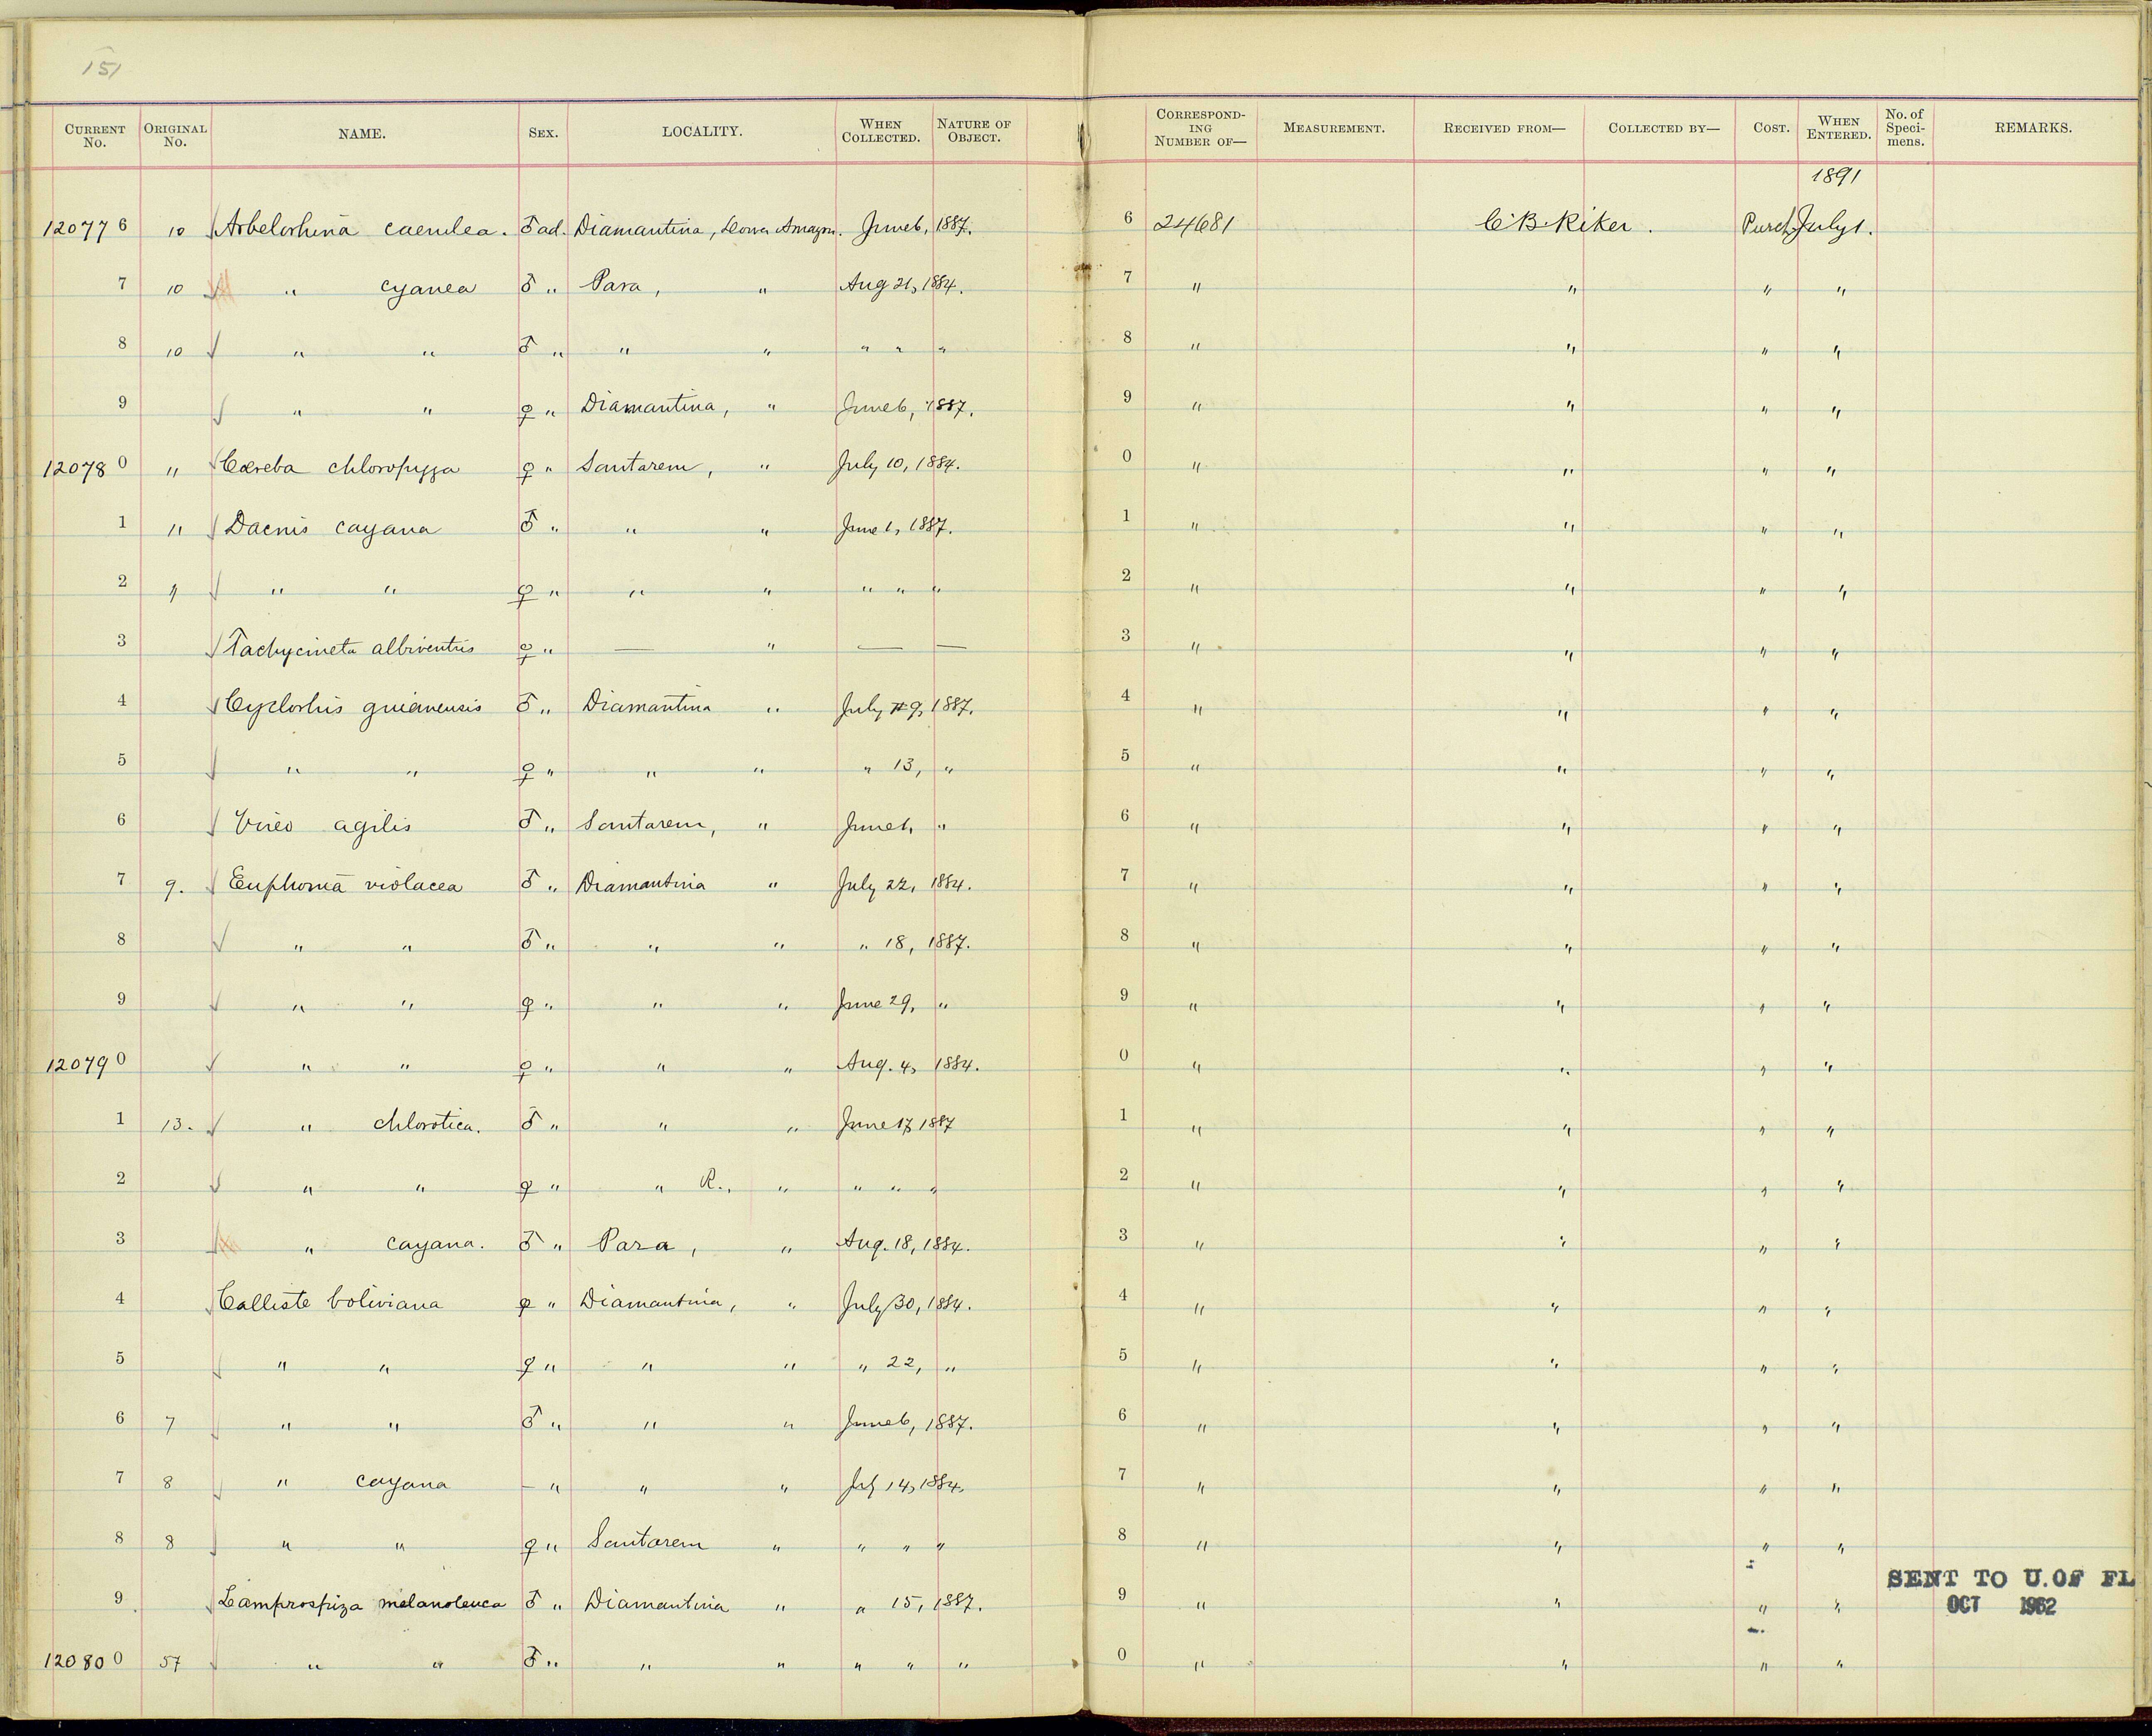 151
CURRENT No. ORIGINAL No. NAME. SEX. LOCALITY. WHEN COLLECTED. NATURE OF OBJECT. CORRESPONDING NUMBER OF— MEASUREMENT. RECEIVED FROM— COLLECTED BY— COST. WHEN ENTERED. No. of Specimens. REMARKS.
1891
120776 10 Arbelorhina caerulea. ♂ ad. Diamantina, Lower Amazon. June 6, 1887. 6 24681 C. B. Riker. Purch. July 1.
7 10 " cyanea ♂ " Para, " Aug 21, 1884. 7 " " " "
8 10 " " ♂ " " " " " " 8 " " " "
9 " " ♀ " Diamantina, " June 6, 1887. 9 " " " "
120780 " Cœreba chloropyga ♀ " Santarem, " July 10, 1884. 0 " " " "
1 11 Dacnis cayana ♂ " " " June 1, 1887. 1 " " " "
2 " " " ♀ " " " " " " 2 " " " "
3 Tachycineta albiventris ♀ " — " — — 3 " " " "
4 Cyclorhis guianensis ♂ " Diamantina " July 9, 1887. 4 " " " "
5 " " ♀ " " " " 13, " 5 " " " "
6 Vireo agilis ♂ " Santarem, " June 1, " 6 " " " "
7 9. Euphonia violacea ♂ " Diamantina " July 22, 1884. 7 " " " "
8 " " ♂ " " " " 18, 1887. 8 " " " "
9 " " ♀ " " " June 29, " 9 " " " "
120790 " " ♀ " " " Aug. 4, 1884. 0 " " " "
1 13. " chlorotica. ♂ " " " June 17, 1887 1 " " " "
2 " " ♀ " " R., " " " " 2 " " " "
3 " cayana. ♂ " Para, " Aug. 18, 1884. 3 " " " "
4 Calliste boliviana ♀ " Diamantina, " July 30, 1884. 4 " " " "
5 " " ♀ " " " " 22, " 5 " " " "
6 7 " " ♂ " " " June 6, 1887. 6 " " " "
7 8 " cayana – " " " July 14, 1884. 7 " " " "
8 8 " " ♀ " Santarem " " " " 8 " " " "
9 Lamprospiza melanoleuca ♂ " Diamantina " " 15, 1887. 9 " " " " SENT TO U. OF FL
OCT 1962
120800 57 " " ♂ " " " " " " 0 " " " "